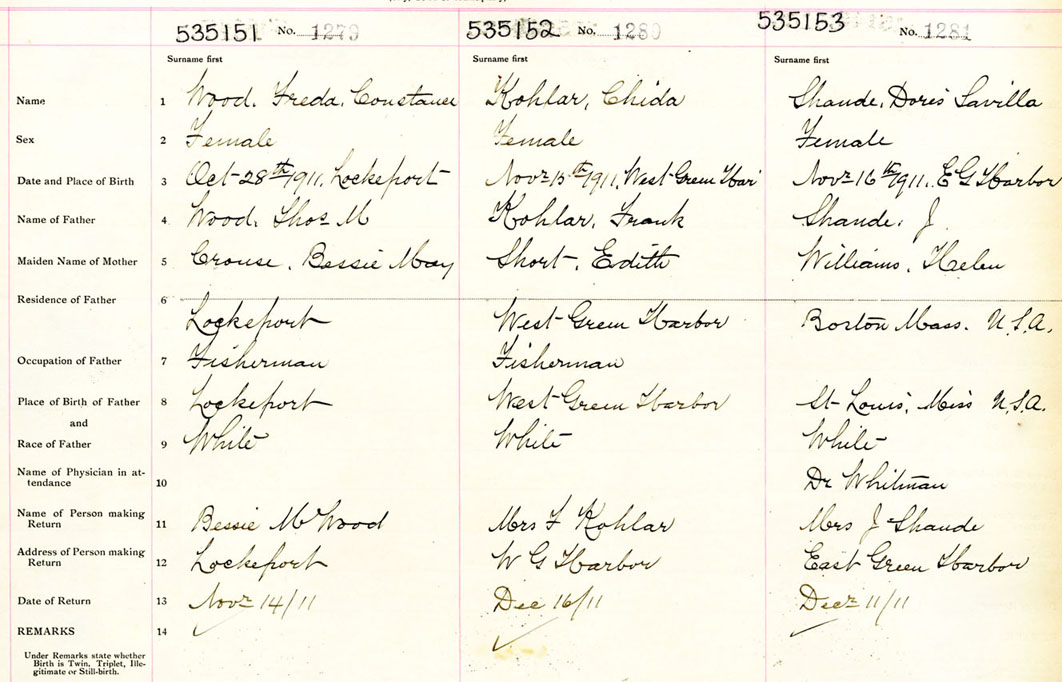 535151 No. 1279 535152 No. 1280 535153 No. 1281
Surname first Surname first Surname first
Name 1 Wood, Freda, Constance Kohlar, Chida Shaude, Doris Savilla
Sex 2 Female Female Female
Date and Place of Birth 3 Oct 28th/1911, Lockeport Novr 15th/1911, West Green Har Novr 16th/1911, E G Harbor
Name of Father 4 Wood, Thos M Kohlar, Frank Shaude, J
Maiden Name of Mother 5 Crouse, Bessie May Short, Edith Williams, Helen
Residence of Father 6 Lockeport West Green Harbor Boston Mass. U.S.A.
Occupation of Father 7 Fisherman Fisherman
Place of Birth of Father 8 Lockeport West Green Harbor St Louis, Miss U.S.A.
and
Race of Father 9 White White White
Name of Physician in at-
tendance 10 Dr Whitman
Name of Person making
Return 11 Bessie M Wood Mrs F Kohlar Mrs J Shaude
Address of Person making
Return 12 Lockeport W G Harbor East Green Harbor
Date of Return 13 Novr 14/11 Dec 16/11 Decr 11/11
REMARKS 14
Under Remarks state whether
Birth is Twin, Triplet, Ille-
gitimate or Still-birth.